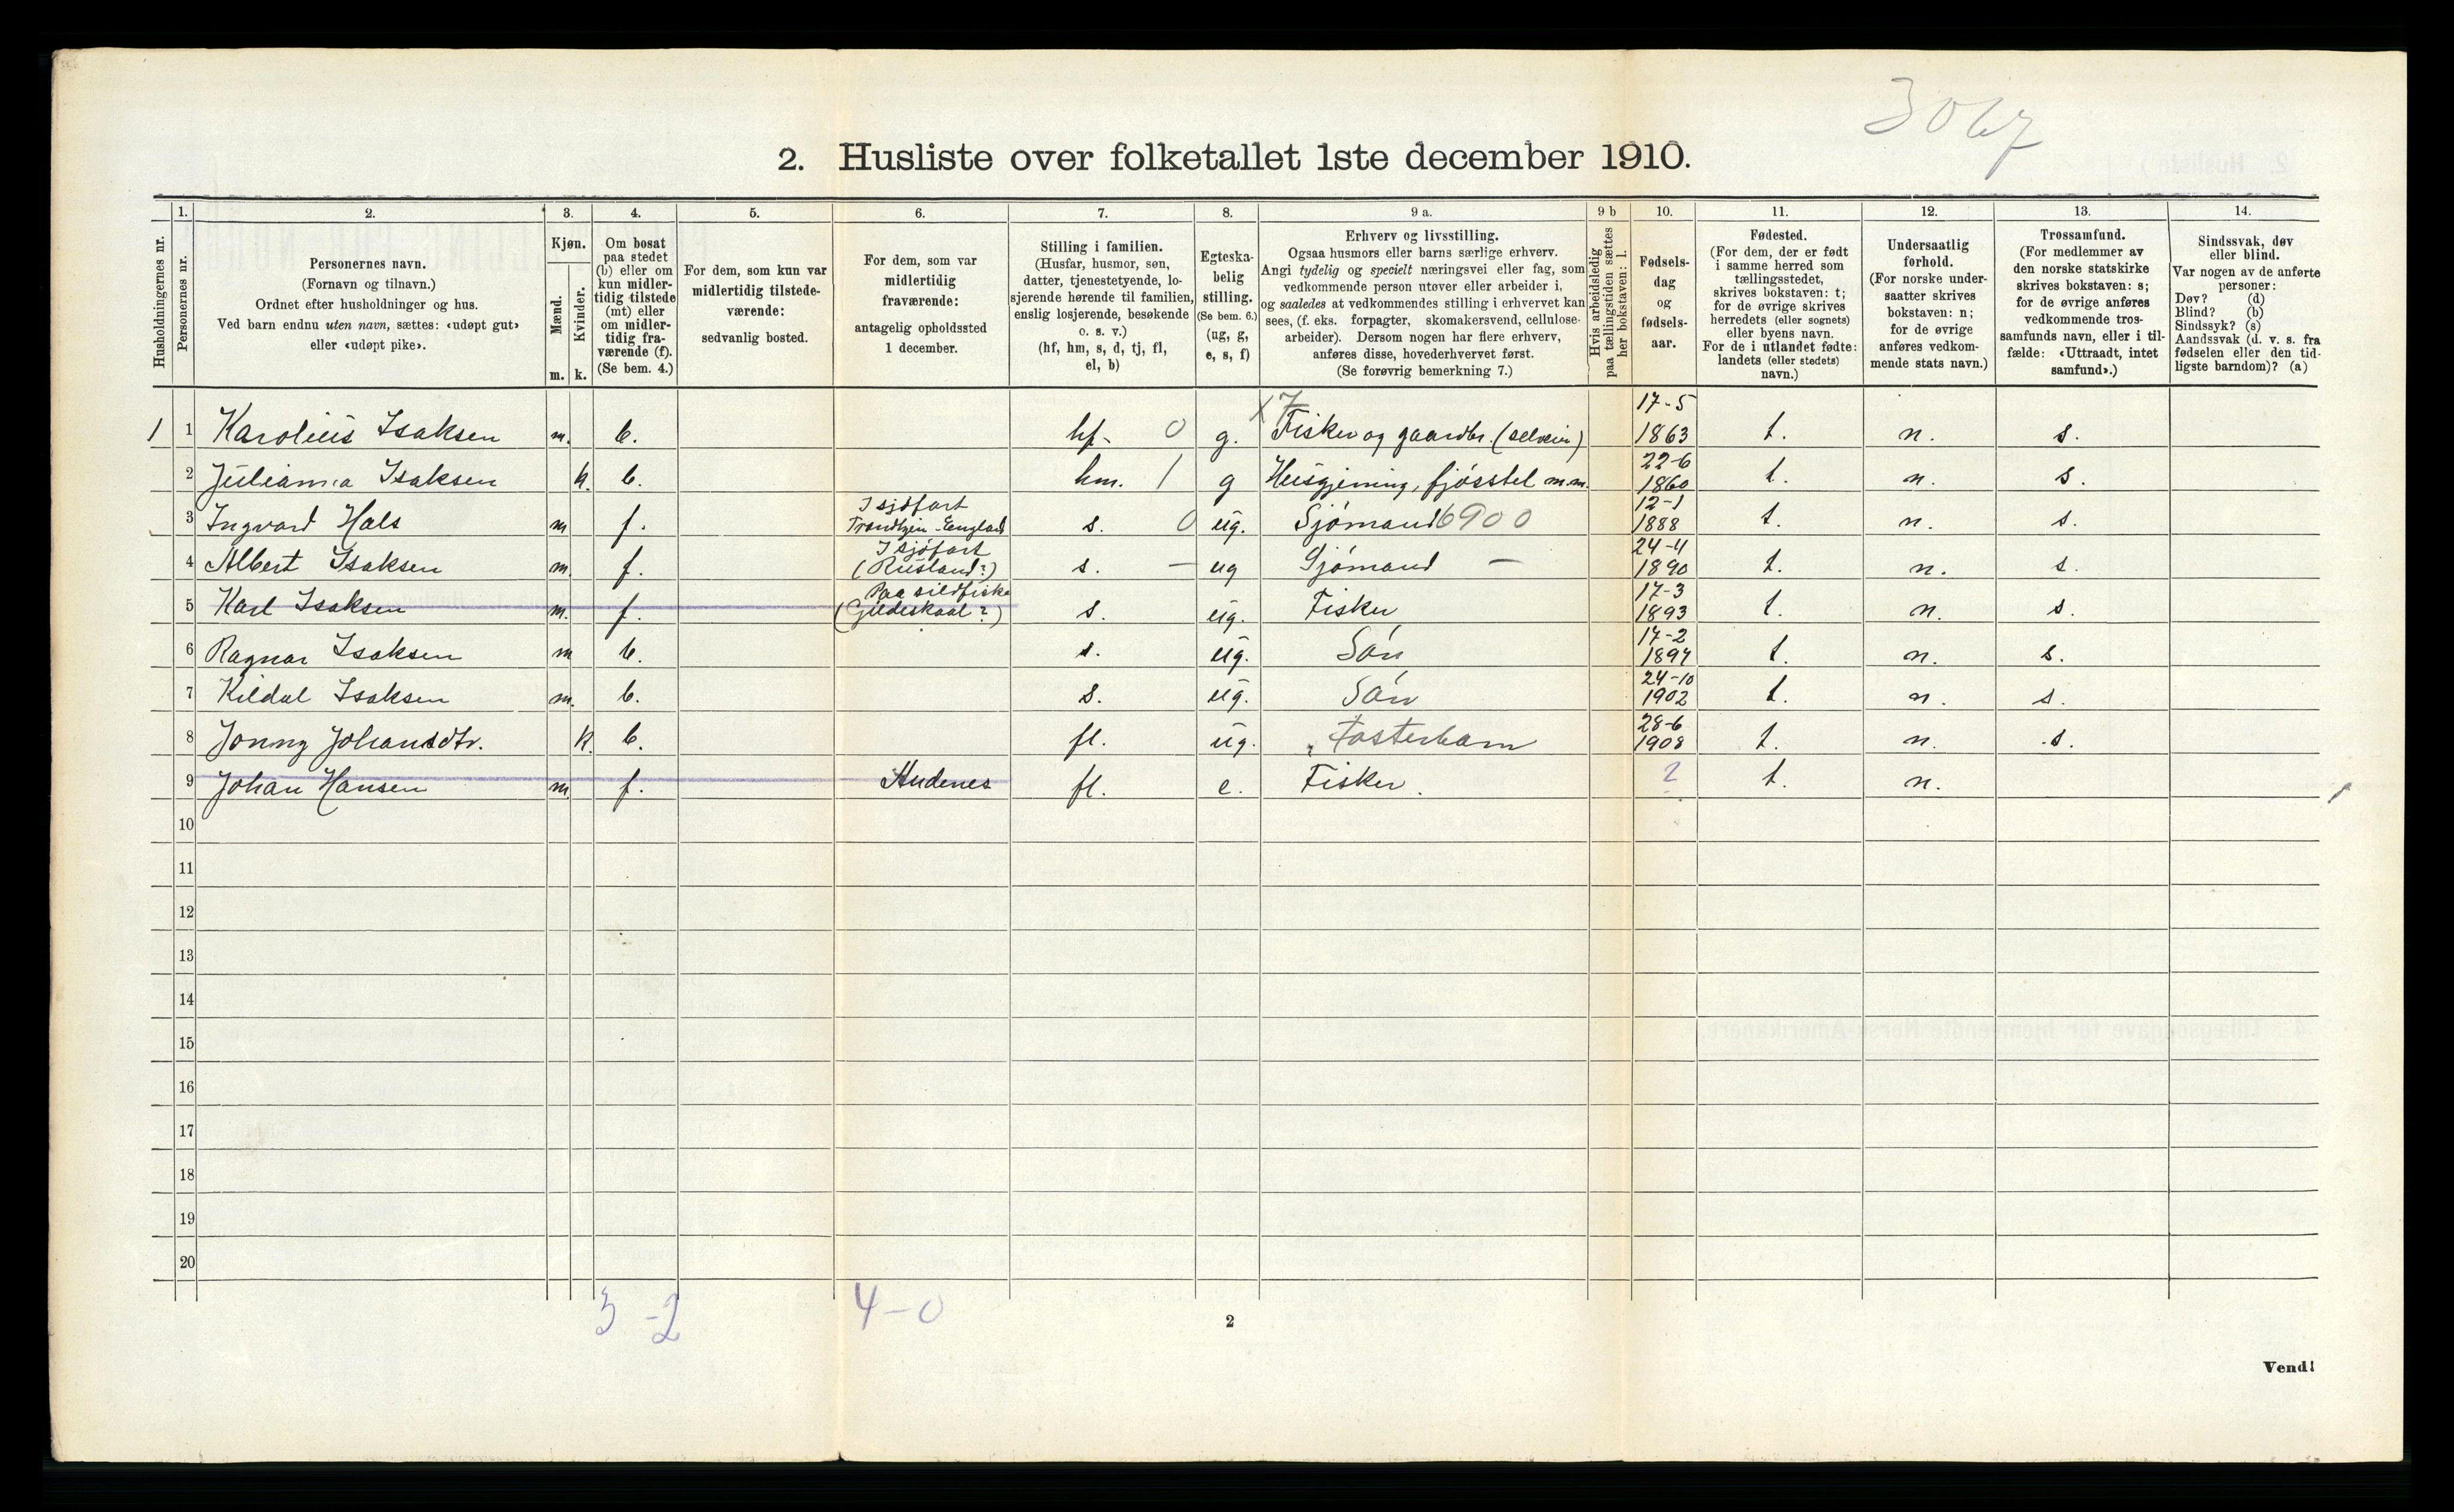 3067
2. Husliste over folketallet 1ste december 1910.
Husholdningernes nr.
1.
Personernes nr.
2.
Personernes navn.
(Fornavn og tilnavn.)
Ordnet efter husholdninger og hus.
Ved barn endnu uten navn, sættes: «udøpt gut»
eller «udøpt pike».
3.
Kjøn.
Mænd.
Kvinder.
m. k.
4.
Om bosat
paa stedet
(b) eller om
kun midler-
tidig tilstede
(mt) eller
om midler-
tidig fra-
værende (f).
(Se bem. 4.)
5.
For dem, som kun var
midlertidig tilstede-
værende:
sedvanlig bosted.
6.
For dem, som var
midlertidig
fraværende:
antagelig opholdssted
1 december.
7.
Stilling i familien.
(Husfar, husmor, søn,
datter, tjenestetyende, lo-
sjerende hørende til familien,
enslig losjerende, besøkende
o. s. v.)
(hf, hm, s, d, tj, fl,
el, b)
8.
Egteska-
belig
stilling.
(Se bem. 6.)
(ug, g,
e, s, f)
9 a.
Erhverv og livsstilling.
Ogsaa husmors eller barns særlige erhverv.
Angi tydelig og specielt næringsvei eller fag, som
vedkommende person utøver eller arbeider i,
og saaledes at vedkommendes stilling i erhvervet kan
sees, (f. eks. forpagter, skomakersvend, cellulose-
arbeider). Dersom nogen har flere erhverv,
anføres disse, hovederhvervet først.
(Se forøvrig bemerkning 7.)
9 b
Hvis arbeidsledig
paa tællingstiden sættes
her bokstaven: l.
10.
Fødsels-
dag
og
fødsels-
aar.
11.
Fødested.
(For dem, der er født
i samme herred som
tællingsstedet,
skrives bokstaven: t;
for de øvrige skrives
herredets (eller sognets)
eller byens navn.
For de i utlandet fødte:
landets (eller stedets)
navn.)
12.
Undersaatlig
forhold.
(For norske under-
saatter skrives
bokstaven: n;
for de øvrige
anføres vedkom-
mende stats navn.)
13.
Trossamfund.
(For medlemmer av
den norske statskirke
skrives bokstaven: s;
for de øvrige anføres
vedkommende tros-
samfunds navn, eller i til-
fælde: «Uttraadt, intet
samfund».)
14.
Sindssvak, døv
eller blind.
Var nogen av de anførte
personer:
Døv? (d)
Blind? (b)
Sindssyk? (s)
Aandssvak (d. v. s. fra
fødselen eller den tid-
ligste barndom)? (a)
1 1 Karolius Isaksen m. b. hf. 0 g. X7 Fisker og gaardbr. (selveier) 17-5 1863 t. n. s.
2 Julianna Isaksen k. b. hm. 1 g Husgjerning, fjósstel m.m. 22-6 1860 t. n. s.
3 Ingvard Hals m f. I sjófart Trondhjein-England s. 0 ug. Sjómand 6900 12-1 1888 t. n. s.
4 Albert Isaksen m. f. I sjófart (Rusland?) s. — ug Sjómand — 24-4 1890 t. n. s.
5 Karl Isaksen m. f. Paa sildfiske (Gildeskaal?) s. ug. Fisker 17-3 1893 t. n. s.
6 Ragnar Isaksen m b. s. ug. Són 17-2 1897 t. n. s.
7 Kildal Isaksen m. b. s. ug. Són 24-10 1902 t. n. s.
8 Jonny Johansdtr. k. b. fl. ug. Fosterbarn 28-6 1908 t. n. s.
9 Johan Hansen m f. Andenes fl. e. Fisker. ? t. n.
10
11
12
13
14
15
16
17
18
19
20
3-2 4-0
2
Vend!